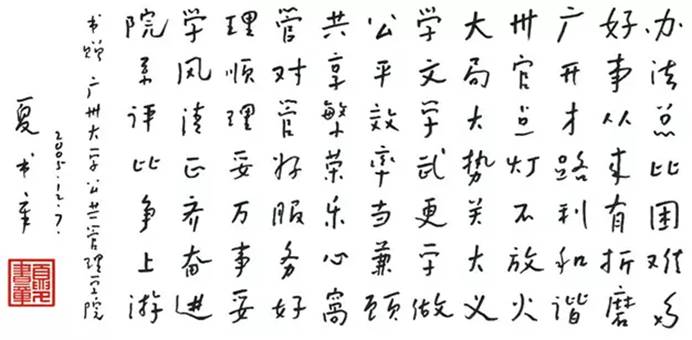 办法总比困难多
好事从来有折磨
广开才路利和谐
州官点灯不放火
大局大势关大义
学文学武更学做
公平效率当兼顾
共享繁荣乐心窝
管对管好服务好
理顺理妥万事妥
学风清正齐奋进
院系评比争上游
书赠广州大学公共管理学院
2005.12.7.
夏书章